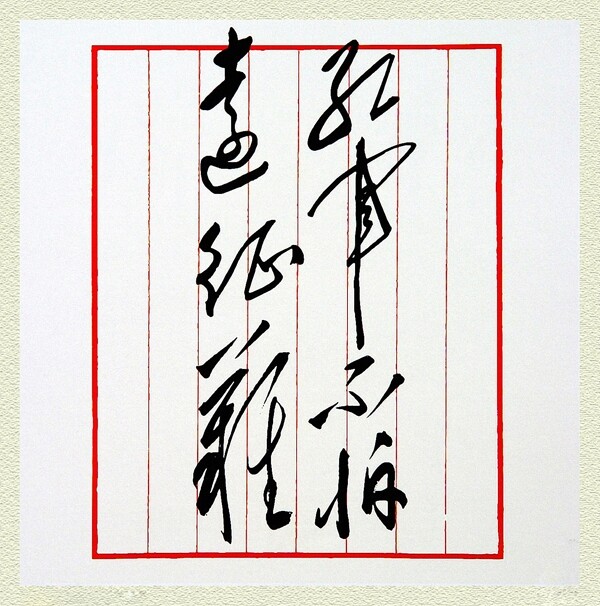 红军不怕
远征难